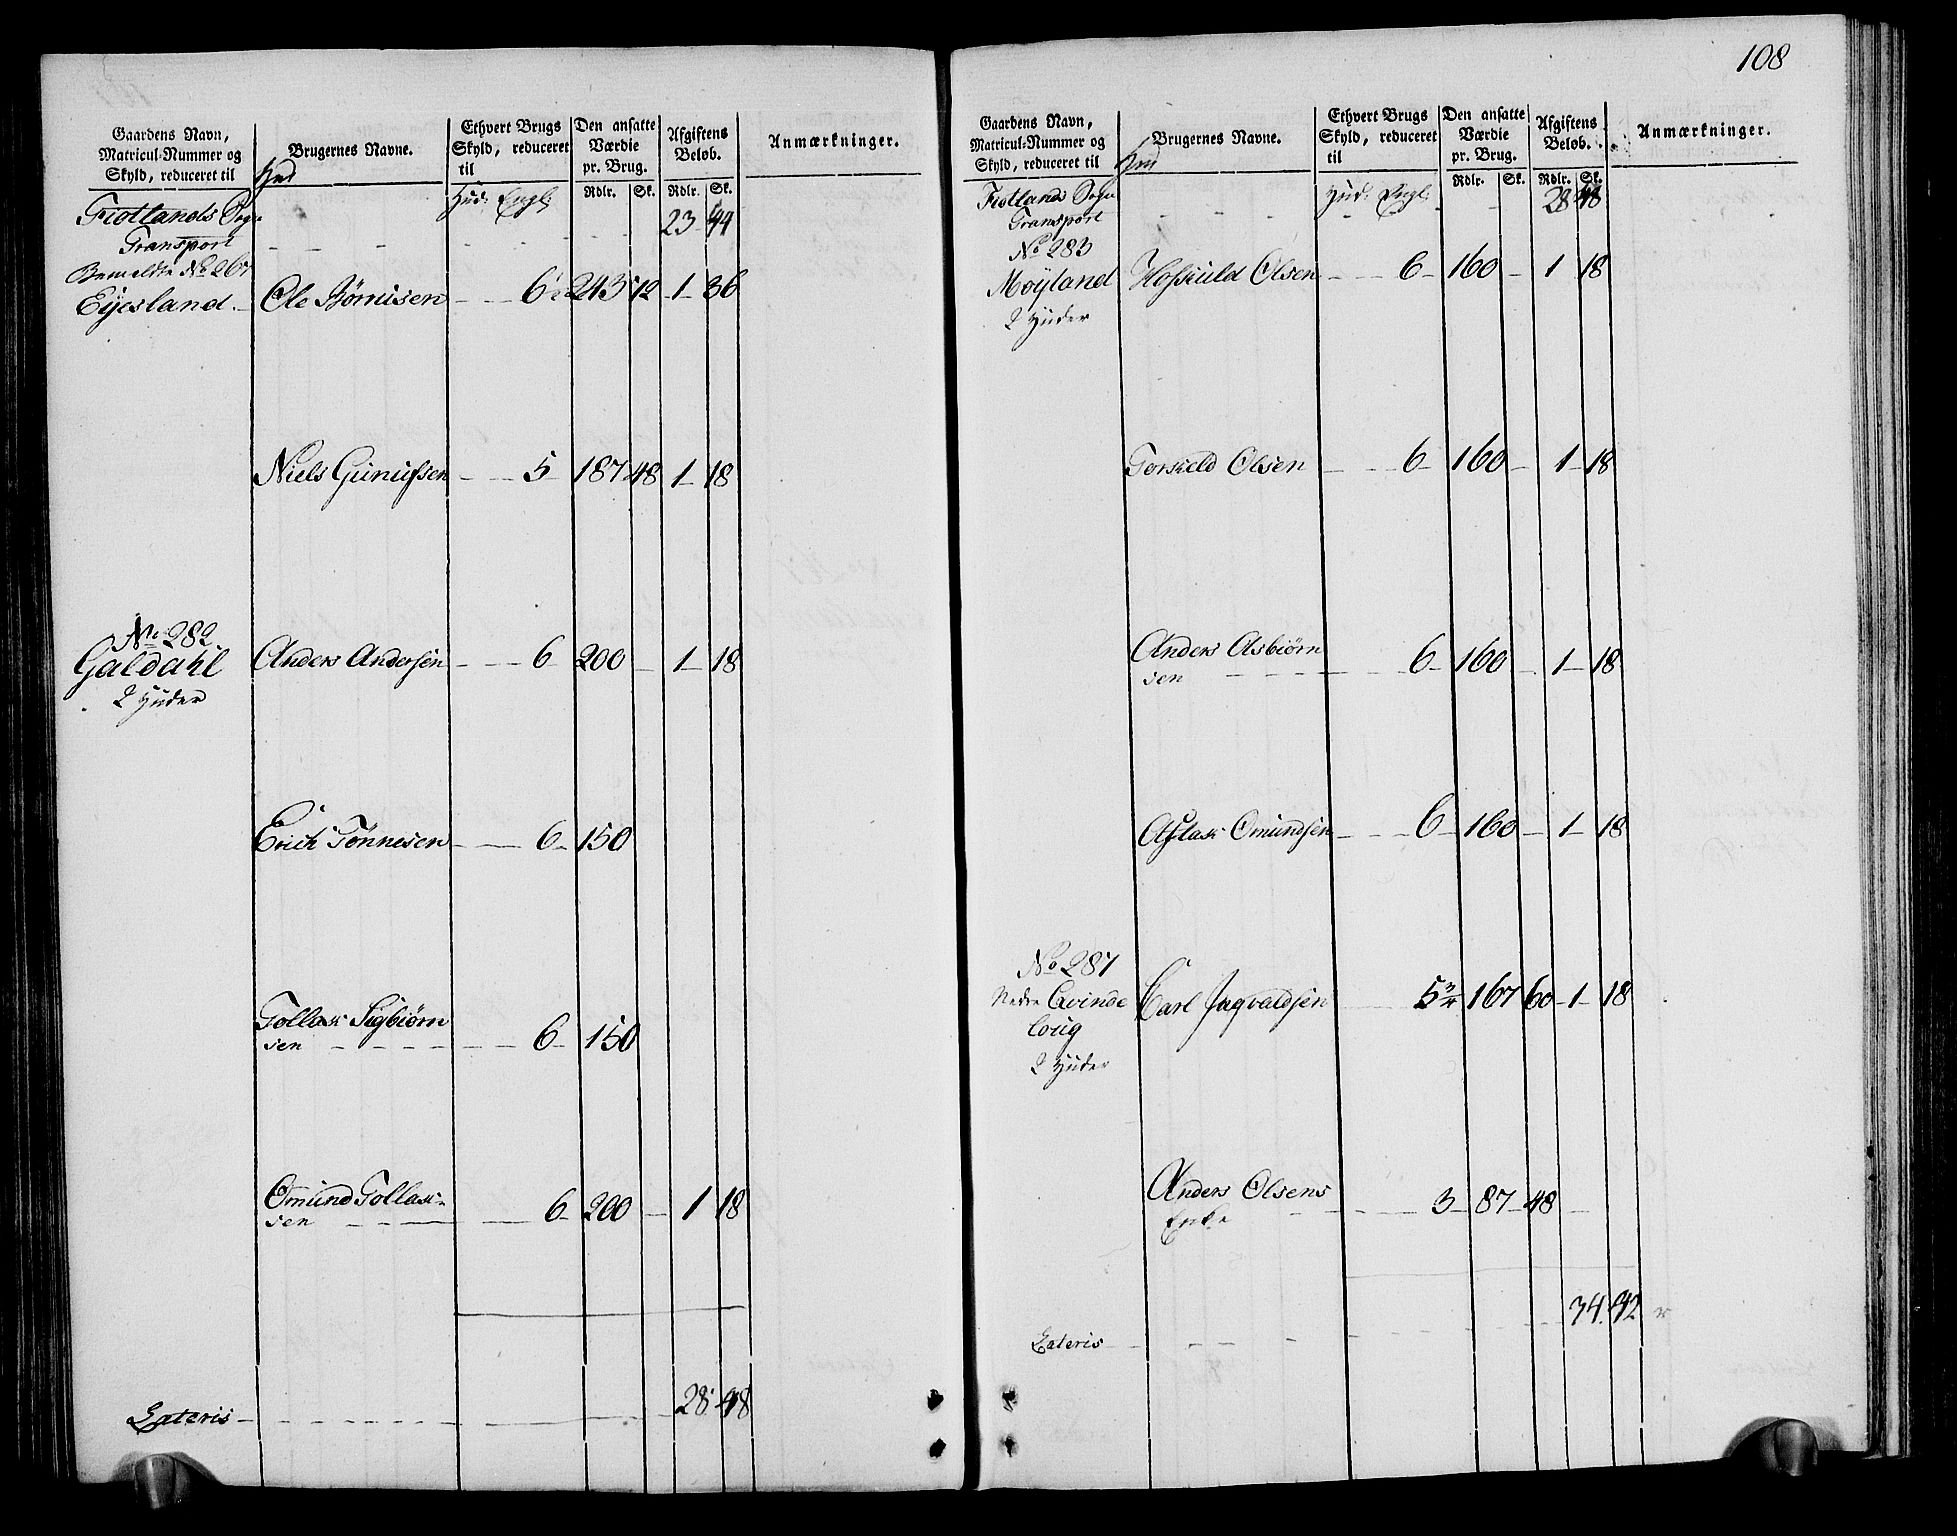 Gaardens Navn,
Matricul-Nummer og
Skyld, reduceret til Hud
Brugernes Navne.
Ethvert Brugs
Skyld, reduceret
til
Den ansatte
Værdie
pr. Brug.
Afgiftens
Beløb.
Anmærkninger.
Hud: Engl: Rdlr. Sk. Rdlr. Sk.
Fiotlands Sogn
Transport 23 44
Bemeldte No 267
Eÿesland Ole Biørnisen 6½ 243 72 1 36
Niels Gunufsen 5 187 48 1 18
No 282
Galdahl Anders Andersen 6 200 1 18
2 Huder
Erich Tønnesen 6 150
Tollax Sigbiørn
sen 6 150
Omund Tollax-
sen 6 200 1 18
Lateris 28 48
108
Gaardens Navn,
Matricul-Nummer og
Skyld, reduceret til Hud
Brugernes Navne.
Ethvert Brugs
Skyld, reduceret
til
Den ansatte
Værdie
pr. Brug.
Afgiftens
Beløb.
Anmærkninger.
Hud: Engl: Rdlr. Sk. Rdlr. Sk.
Fiotlands Sogn
Transport 28 48
No 283
Moÿland Hoskuld Olsen 6 160 1 18
2 Huder
Torkeld Olsen 6 160 1 18
Anders Asbiørn
sen 6 160 1 18
Aslak Omundsen 6 160 1 18
No 287
Nedre Qvinde Carl Jngvaldsen 5 167 60 1 18
loug
2 Huder
Anders Olsens
Enke 3 87 48
34 42
Lateris